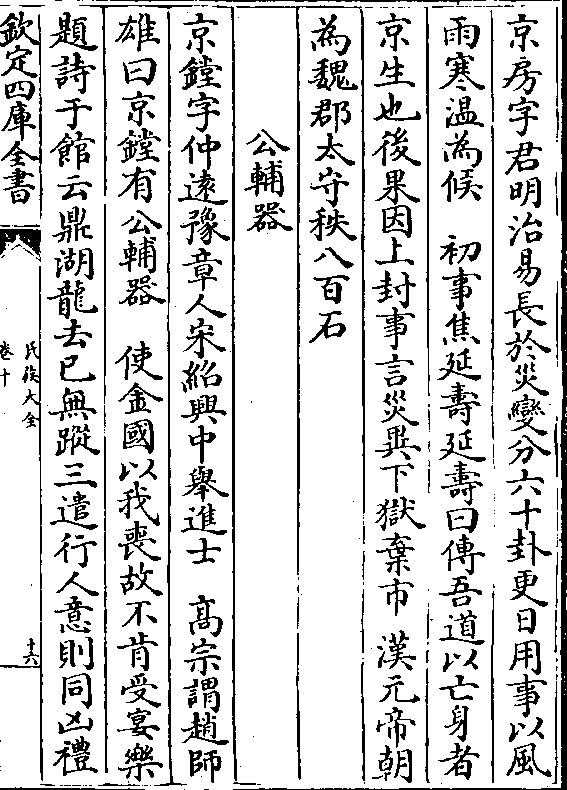 京房字君明治易長於災變分六十卦更日用事以風
雨寒温為候　初事焦延壽延壽曰傳吾道以亡身者
京生也後果因上封事言災異下獄棄市　漢元帝朝
為魏郡太守秩八百石
公輔器
京鏜字仲遠豫章人宋紹興中舉進士　髙宗謂趙師
雄曰京鏜有公輔器　使金國以我喪故不肯受宴樂
題詩于館云鼎湖龍去已無蹤三遣行人意則同凶禮
欽定四庫全書
氏族大全
卷十
十六